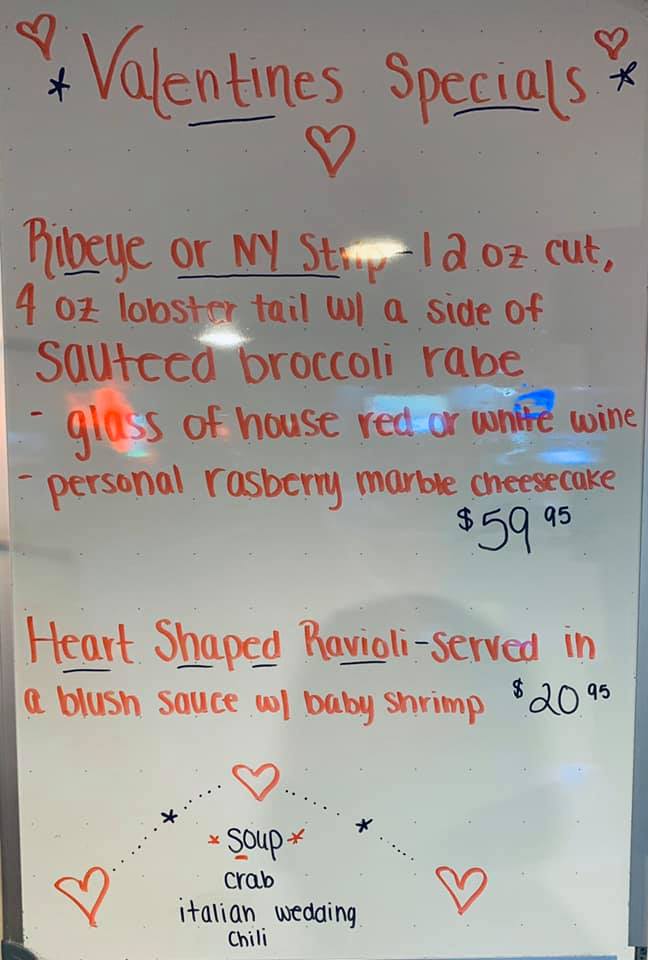 * Valentines Specials *
Ribeye or NY Strip - 12 oz cut,
4 oz lobster tail w/ a side of
Sauteed broccoli rabe
- glass of house red or white wine
- personal rasberry marble cheesecake
$59 95
Heart Shaped Ravioli - served in
a blush sauce w/ baby shrimp $20 95
* soup *
crab
italian wedding
chili